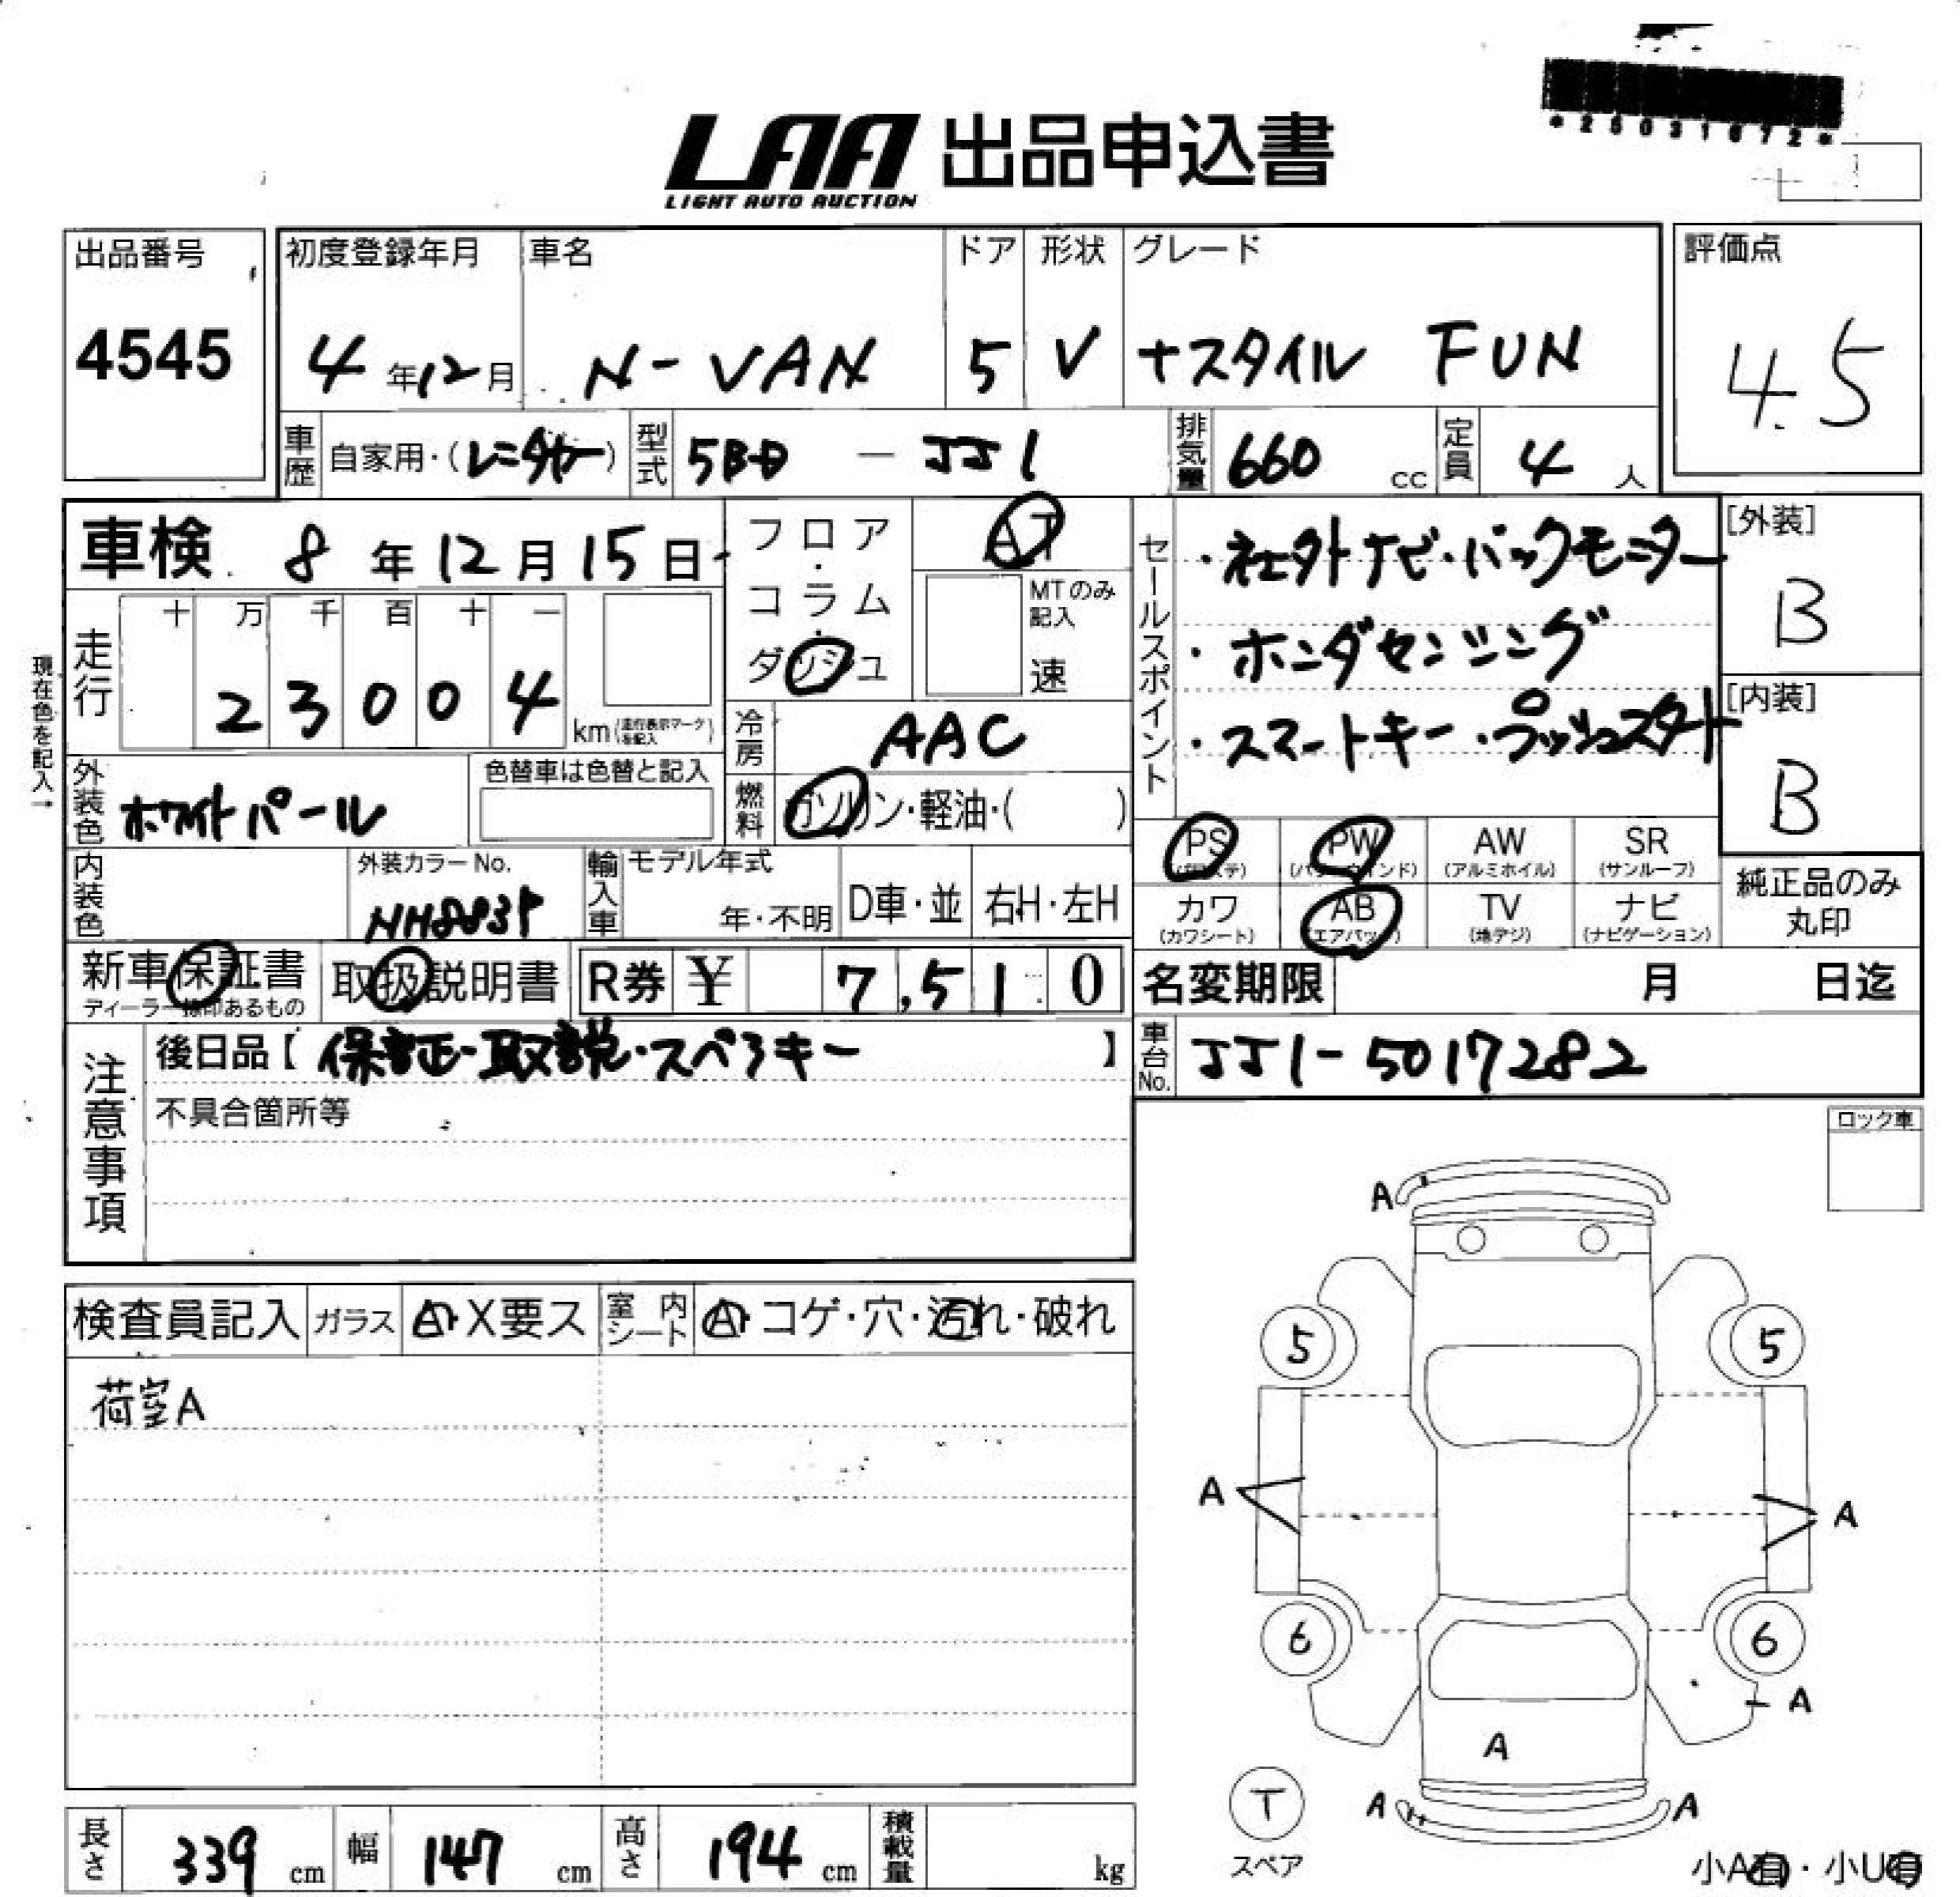 *25031672*
LAA 出品申込書
LIGHT AUTO AUCTION
出品番号
4545
初度登録年月
4年12月
車名
N-VAN
ドア
5
形状
V
グレード
+スタイル FUN
評価点
4.5
車歴 自家用・(レンタカー)
型式 5BD - JJ1
排気量 660 cc
定員 4 人
車検 8年12月15日
フロア・コラム・ダッシュ
AT
MTのみ記入
速
セールスポイント
・社外ナビ・バックモニター
・ホンダセンシング
・スマートキー・プッシュスタート
[外装]
B
[内装]
B
現在色を記入→
走行
十 万 千 百 十 一
2 3 0 0 4
km(走行表示マークを記入)
冷房 AAC
燃料 ガソリン・軽油・( )
外装色 ホワイトパール
色替車は色替と記入
内装色
外装カラーNo.
NH883P
輸入車 モデル年式
年・不明
D車・並
右H・左H
PS (パワステ)
PW (パワーウインド)
AW (アルミホイル)
SR (サンルーフ)
カワ (カワシート)
AB (エアバック)
TV (地デジ)
ナビ (ナビゲーション)
純正品のみ丸印
新車保証書
ディーラー捺印あるもの
取扱説明書
R券 ¥ 7,510
名変期限 月 日迄
車台No. JJ1-5017282
注意事項
後日品【保証・取説・スペアキー】
不具合箇所等
ロック車
検査員記入
ガラス A・X要ス
室内シート A・コゲ・穴・汚れ・破れ
荷室A
A
5 5
A A
6 6
A
A
A A
T
スペア
小A有・小U有
長さ 339 cm
幅 147 cm
高さ 194 cm
積載量 kg